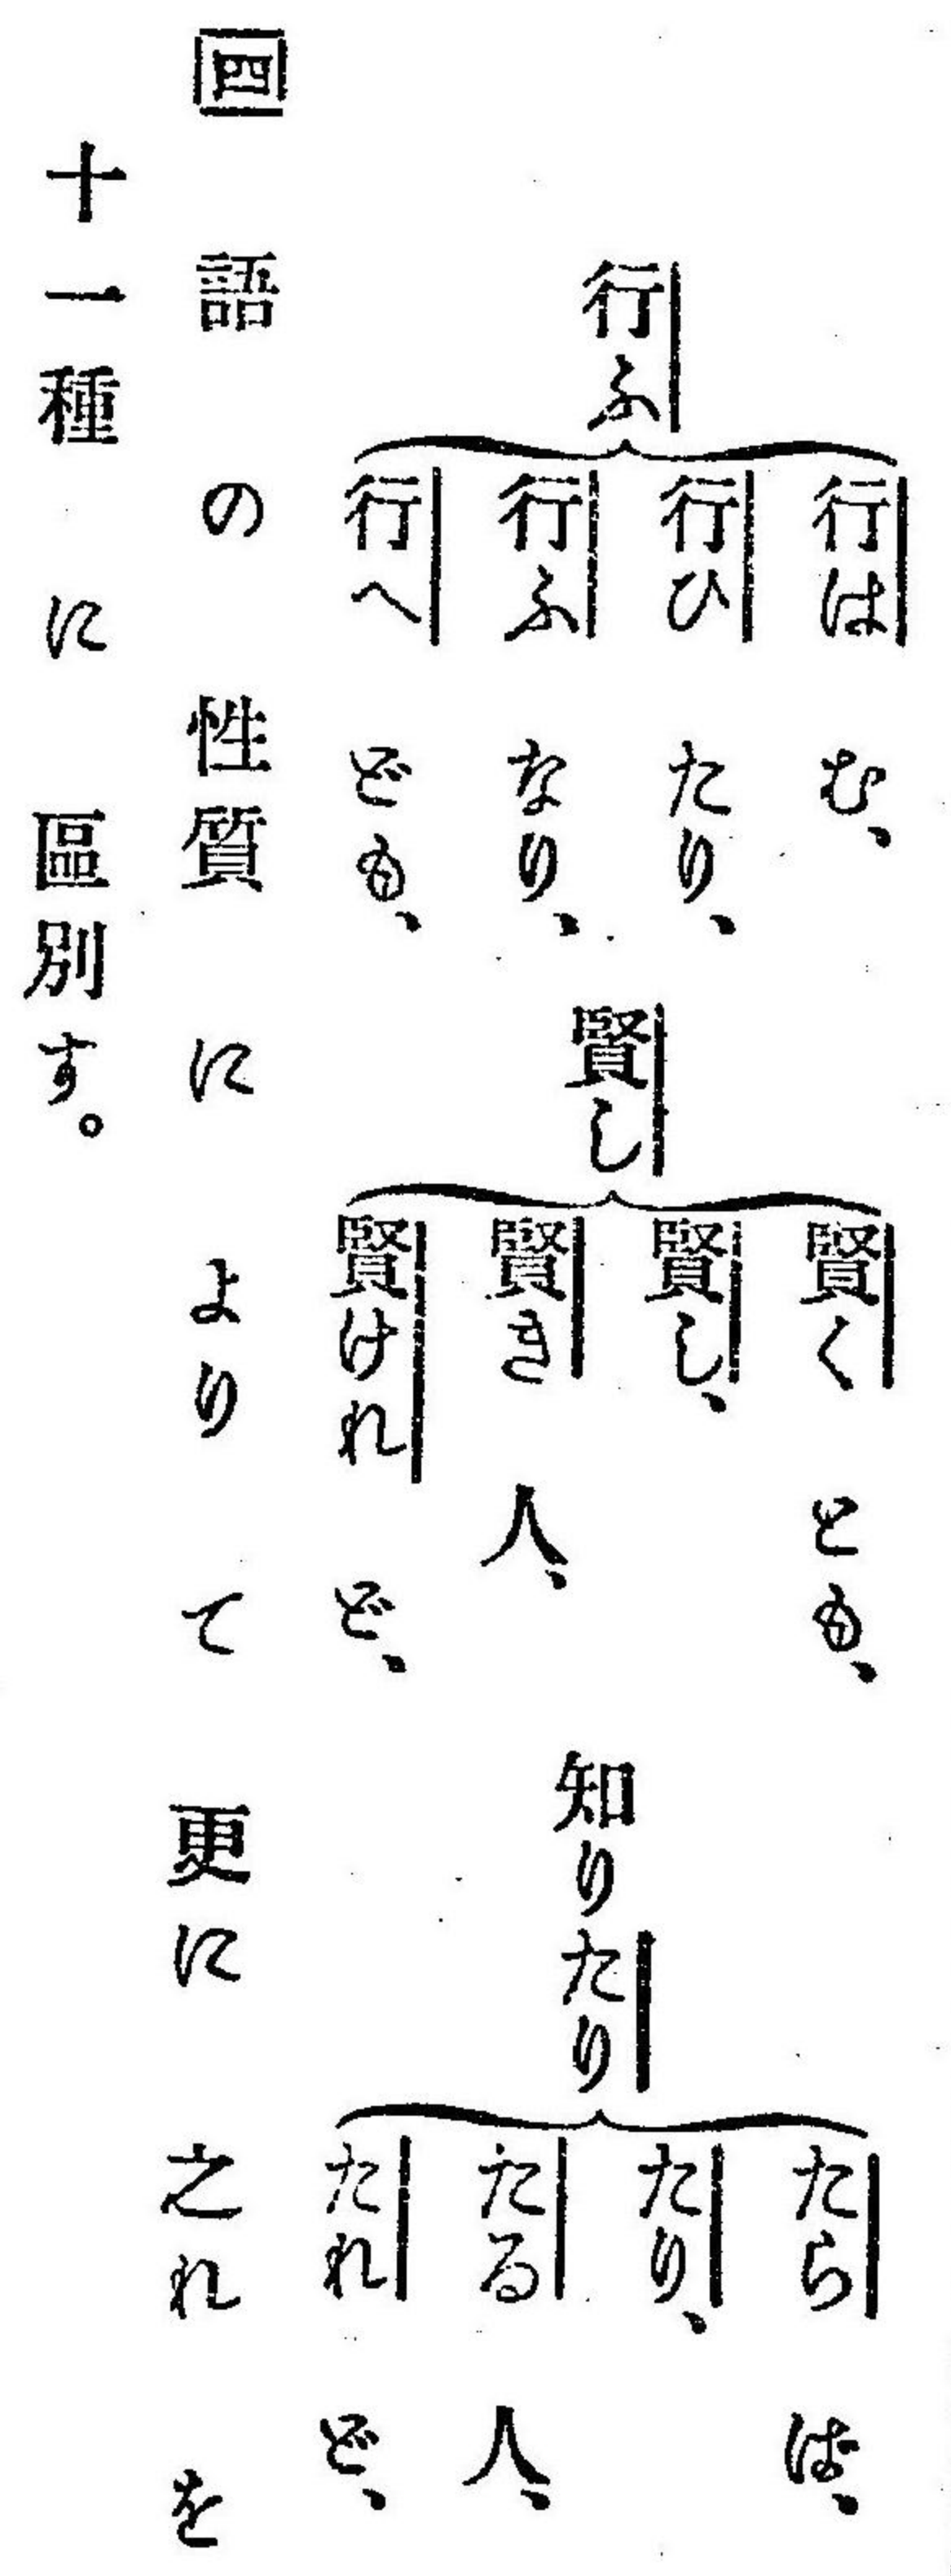 行ふ
行は む、
行ひ たり、
行ふ なり、
行へ ども、
賢し
賢く とも、
賢し、
賢き 人、
賢けれ ど、
知りたり
たら ば、
たり、
たる 人、
たれ ど、
四 語 の 性質 に より て 更に 之れ を
十一種 に 區別す。